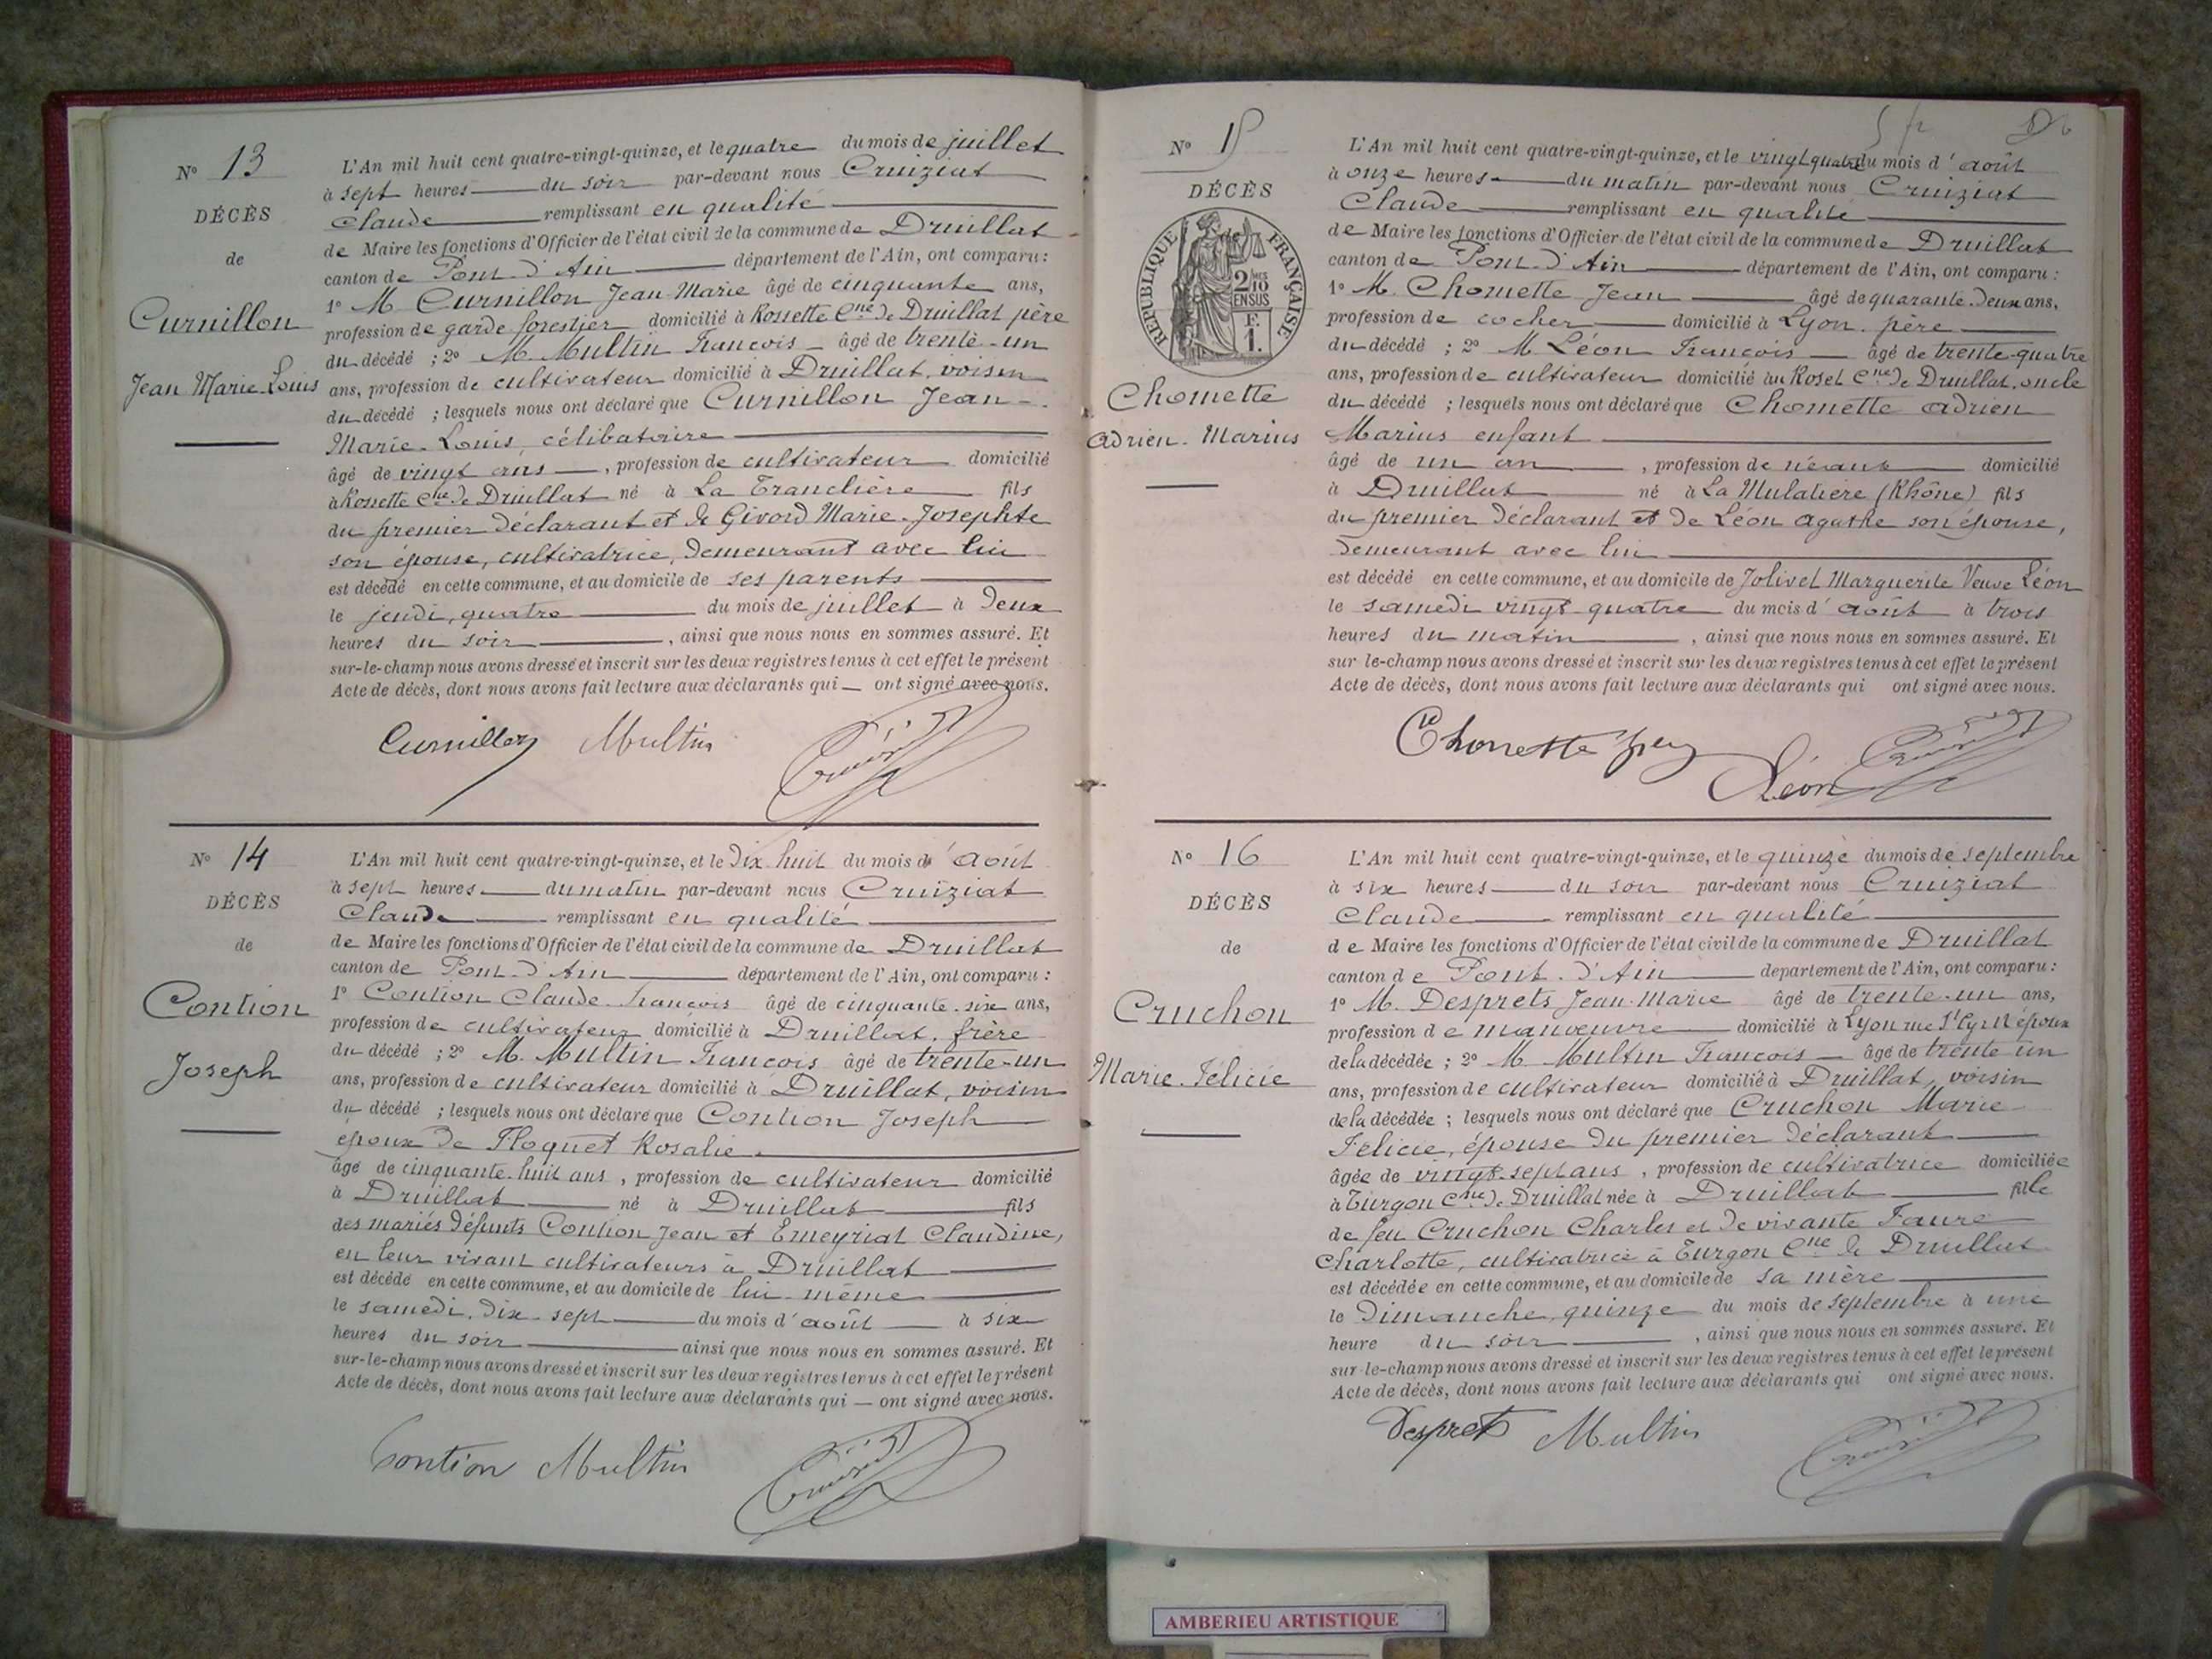 N° 13
DÉCÈS
de
Curnillon
Jean Marie-Louis
L'An mil huit cent quatre-vingt-quinze, et le quatre du mois de juillet
à sept heures du soir par-devant nous Cruiziat
Claude remplissant en qualité
de Maire les fonctions d'Officier de l'état civil de la commune de Druillat
canton de Pont-d'Ain département de l'Ain, ont comparu :
1° M Curnillon Jean-Marie âgé de cinquante ans,
profession de garde forestier domicilié à Rossette Cne de Druillat père
du décédé ; 2° M. Multin François âgé de trente-un
ans, profession de cultivateur domicilié à Druillat, voisin
du décédé ; lesquels nous ont déclaré que Curnillon Jean-
Marie-Louis, célibataire
âgé de vingt ans, profession de cultivateur domicilié
à Rossette Cne de Druillat né à La Tranclière fils
du premier déclarant et de Givord Marie-Josephte
son épouse, cultivatrice, demeurant avec lui
est décédé en cette commune, et au domicile de ses parents
le jeudi, quatre du mois de juillet à deux
heures du soir, ainsi que nous nous en sommes assuré. Et
sur-le-champ nous avons dressé et inscrit sur les deux registres tenus à cet effet le présent
Acte de décès, dont nous avons fait lecture aux déclarants qui — ont signé avec nous.
Curnillon Multin
N° 14
DÉCÈS
de
Contion
Joseph
L'An mil huit cent quatre-vingt-quinze, et le dix huit du mois d'août
à sept heures du matin par-devant nous Cruiziat
Claude remplissant en qualité
de Maire les fonctions d'Officier de l'état civil de la commune de Druillat
canton de Pont-d'Ain département de l'Ain, ont comparu :
1° Contion Claude-François âgé de cinquante-six ans,
profession de cultivateur domicilié à Druillat, frère
du décédé ; 2° M. Multin François âgé de trente-un
ans, profession de cultivateur domicilié à Druillat, voisin
du décédé ; lesquels nous ont déclaré que Contion Joseph
époux de Floquet Rosalie
âgé de cinquante-huit ans, profession de cultivateur domicilié
à Druillat né à Druillat fils
des mariés défunts Contion Jean et Emeyriat Claudine,
en leur vivant cultivateurs à Druillat
est décédé en cette commune, et au domicile de lui-même
le samedi, dix-sept du mois d'août à six
heures du soir ainsi que nous nous en sommes assuré. Et
sur-le-champ nous avons dressé et inscrit sur les deux registres tenus à cet effet le présent
Acte de décès, dont nous avons fait lecture aux déclarants qui — ont signé avec nous.
Contion Multin
N° 15
DÉCÈS
RÉPUBLIQUE FRANÇAISE
2/10
EN SUS
F.
1.
Chomette
Adrien-Marius
L'An mil huit cent quatre-vingt-quinze, et le vingt quatre du mois d'août
à onze heures du matin par-devant nous Cruiziat
Claude remplissant en qualité
de Maire les fonctions d'Officier de l'état civil de la commune de Druillat
canton de Pont-d'Ain département de l'Ain, ont comparu :
1° M. Chomette Jean âgé de quarante-deux ans,
profession de cocher domicilié à Lyon, père
du décédé ; 2° M Léon François âgé de trente-quatre
ans, profession de cultivateur domicilié au Roset Cne de Druillat, oncle
du décédé ; lesquels nous ont déclaré que Chomette Adrien
Marius enfant
âgé de un an, profession de néant domicilié
à Druillat né à La Mulatière (Rhône) fils
du premier déclarant et de Léon Agathe son épouse,
demeurant avec lui
est décédé en cette commune, et au domicile de Jolivet Marguerite Veuve Léon
le samedi vingt-quatre du mois d'août à trois
heures du matin, ainsi que nous nous en sommes assuré. Et
sur le-champ nous avons dressé et inscrit sur les deux registres tenus à cet effet le présent
Acte de décès, dont nous avons fait lecture aux déclarants qui ont signé avec nous.
Léon
N° 16
DÉCÈS
de
Cruchon
Marie-Félicie
L'An mil huit cent quatre-vingt-quinze, et le quinze du mois de septembre
à six heures du soir par-devant nous Cruiziat
Claude remplissant en qualité
de Maire les fonctions d'Officier de l'état civil de la commune de Druillat
canton de Pont-d'Ain département de l'Ain, ont comparu :
1° M. Desprets Jean-Marie âgé de trente-un ans,
profession de manœuvre domicilié à Lyon rue St Cyr époux
de la décédée ; 2° M Multin François âgé de trente un
ans, profession de cultivateur domicilié à Druillat, voisin
de la décédée ; lesquels nous ont déclaré que Cruchon Marie
Félicie, épouse du premier déclarant
âgée de vingt-sept ans, profession de cultivatrice domiciliée
à Turgon Cne de Druillat née à Druillat fille
de feu Cruchon Charles et de vivante Faure
Charlotte, cultivatrice à Turgon Cne de Druillat
est décédée en cette commune, et au domicile de sa mère
le dimanche, quinze du mois de septembre à une
heure du soir, ainsi que nous nous en sommes assuré. Et
sur-le-champ nous avons dressé et inscrit sur les deux registres tenus à cet effet le présent
Acte de décès, dont nous avons fait lecture aux déclarants qui ont signé avec nous.
Despret Multin
AMBERIEU ARTISTIQUE